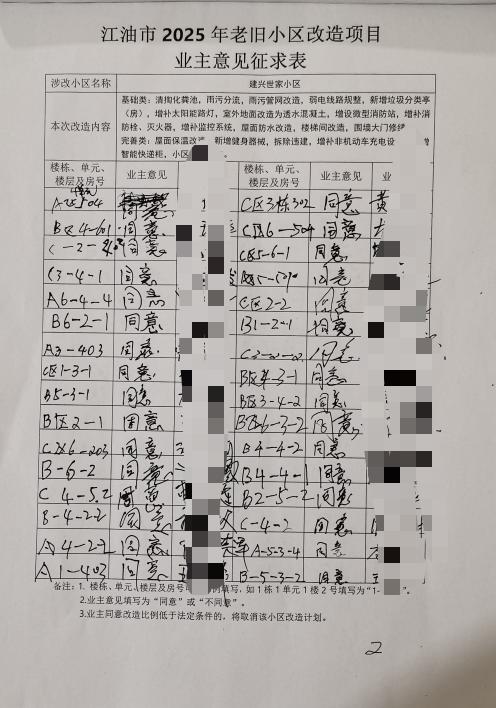 江油市 2025 年老旧小区改造项目
业主意见征求表
涉改小区名称 建兴世家小区
本次改造内容 基础类：清掏化粪池，雨污分流，雨污管网改造，弱电线路规整，新增垃圾分类亭
（房），增补太阳能路灯，室外地面改造为透水混凝土，增设微型消防站，增补消
防栓、灭火器，增补监控系统，屋面防水改造，楼梯间改造，围墙大门修缮
完善类：屋面保温改 新增健身器械，拆除违建，增补非机动车充电设
智能快递柜，小区
楼栋、单元、楼层及房号 业主意见 楼栋、单元、楼层及房号 业主意见 业
504 同意 C区3栋302 同意 黄
B区4-601 同意 C区6-504 同意
同意 C区5-6-1 同意
C3-4-1 同意 同意
A6-4-4 同意 C区2-2 同意
B6-2-1 同意 B1-2-1 同意
A3-403 同意 同意
C区1-3-1 同意 同意
B5-3-1 同意 B区3-4-2 同意
B区2-1 同意 B区6-3-2 同意
C区6-203 同意 B4-4-2 同意
B-6-2 同意 B4-4-1 同意
C 4-5.2 同意 B2-5-2 同意
8-4-2-2 同意 C-4-2 同意
A4-2-2 同意 A-5-3-4 同意
A1-403 同意 B-5-3-2 同意
备注：1. 楼栋、单元、楼层及房号 例填写，如 1 栋 1 单元 1 楼 2 号填写为“1- ”。
2.业主意见填写为“同意”或“不同意”。
3.业主同意改造比例低于法定条件的，将取消该小区改造计划。
2